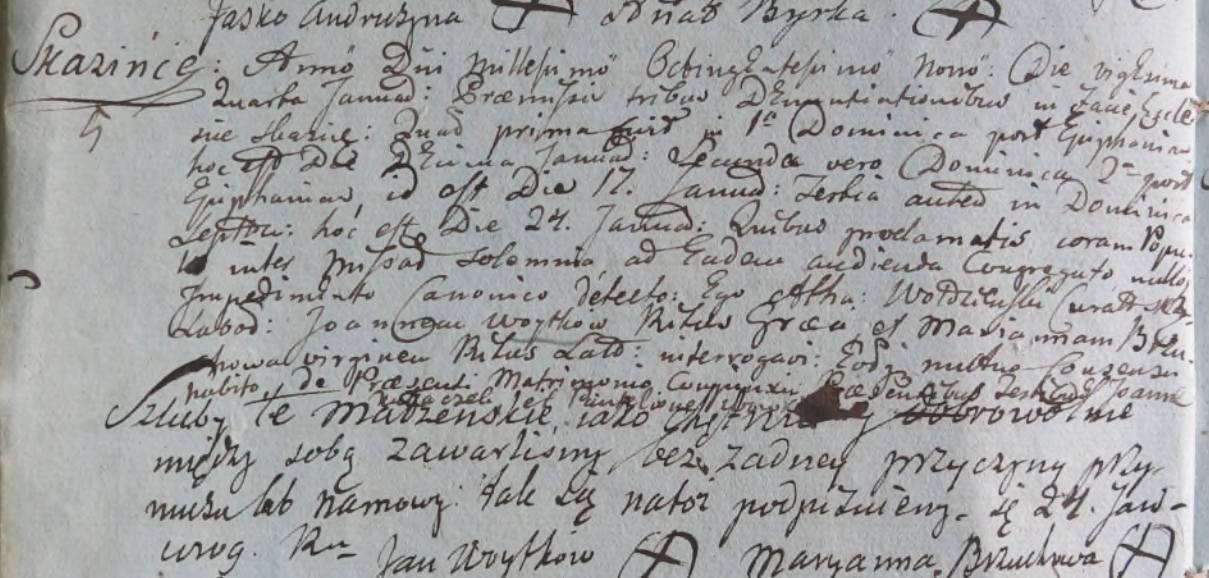 Jaśko Andruszyna Ihnat Byrka.
Skazińce: Anno Dni Millesimo Octingentesimo Nono: Die vigesima
5 Quarta Januar: Præmissis tribus Denuntiationibus in facie Eccle-
siæ Skazinc: Quar prima fuit in 1a Dominica post Epiphaniam
hoc est Die Decima Januar: Secunda vero Dominica 2a post
Epiphaniam, id est Die 17. Januar: Tertia autem in Dominica
Septu: hoc est Die 24. Januar: Quibus proclamatis coram Popu-
lo inter Missar Solemnia ad Eadem audienda Congregato nulloq
Impedimento Canonico detecto: Ego Curatus
Labod: Joannem Woytków Ritus Græci et Mariannam Brzu-
chowa virginem Ritus Lat: interrogavi: Eorq mutuo Consensu
habito de Præsenti Matrimonio Conjunxi Præsentibus Testibus Joanne
et
Szluby te Małżenskie, iako chętnie y dobrowolnie
między sobą zawarlismy bez żadney przyczyny przy-
musu lub namowy: tak się natoż podpisuiemy się 24. Jan-
uarog. Ru- Jan Woytków Maryanna Brzuchowa